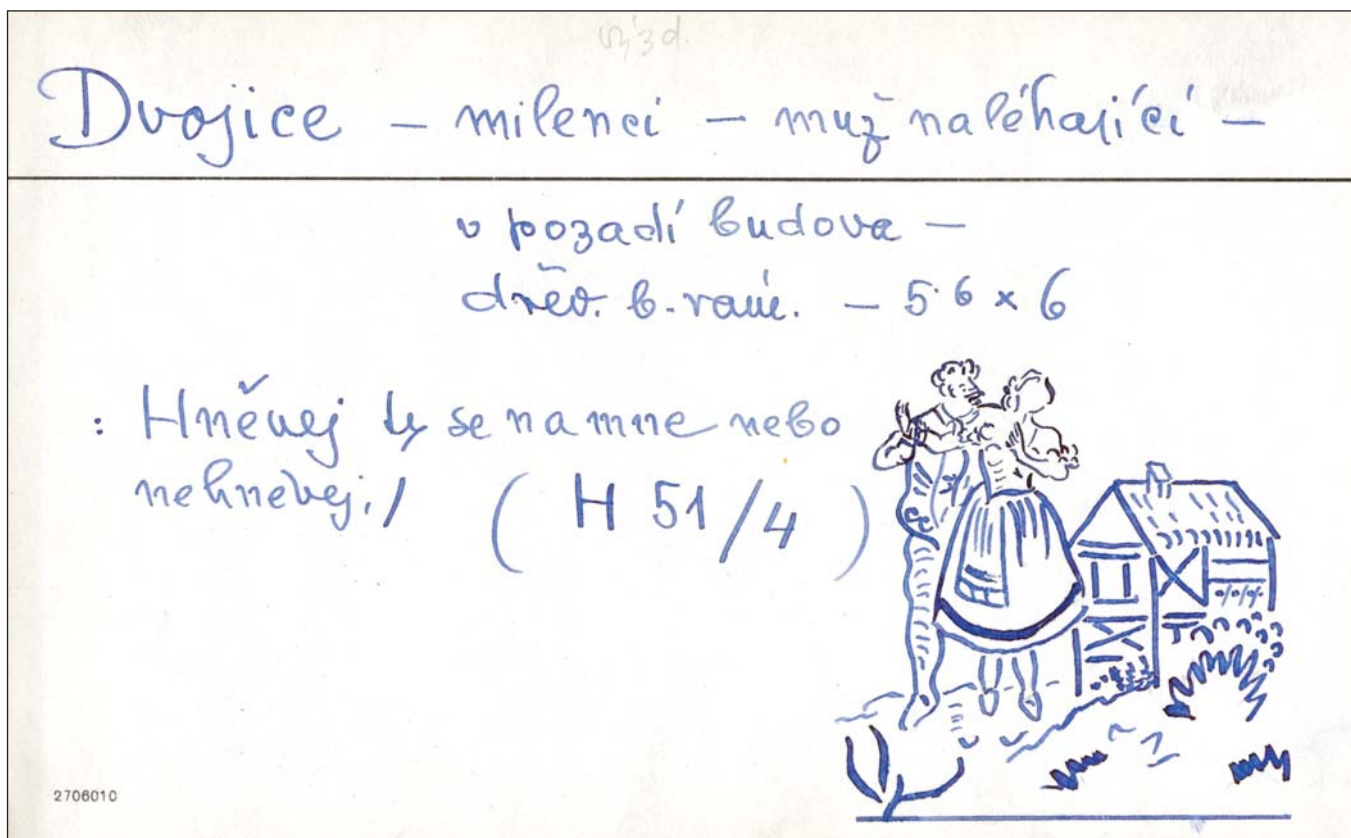 Dvojice – milenci – muž naléhající –
v pozadí budova –
dřev. b. – 5·6 × 6
: Hněvej ty se na mne nebo
nehnevej./ (H 51/4)
2706010